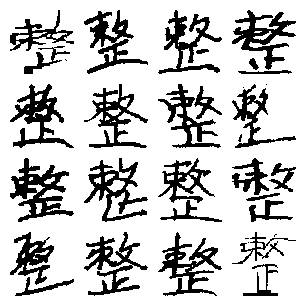 整整整整
整整整整
整整整整
整整整整